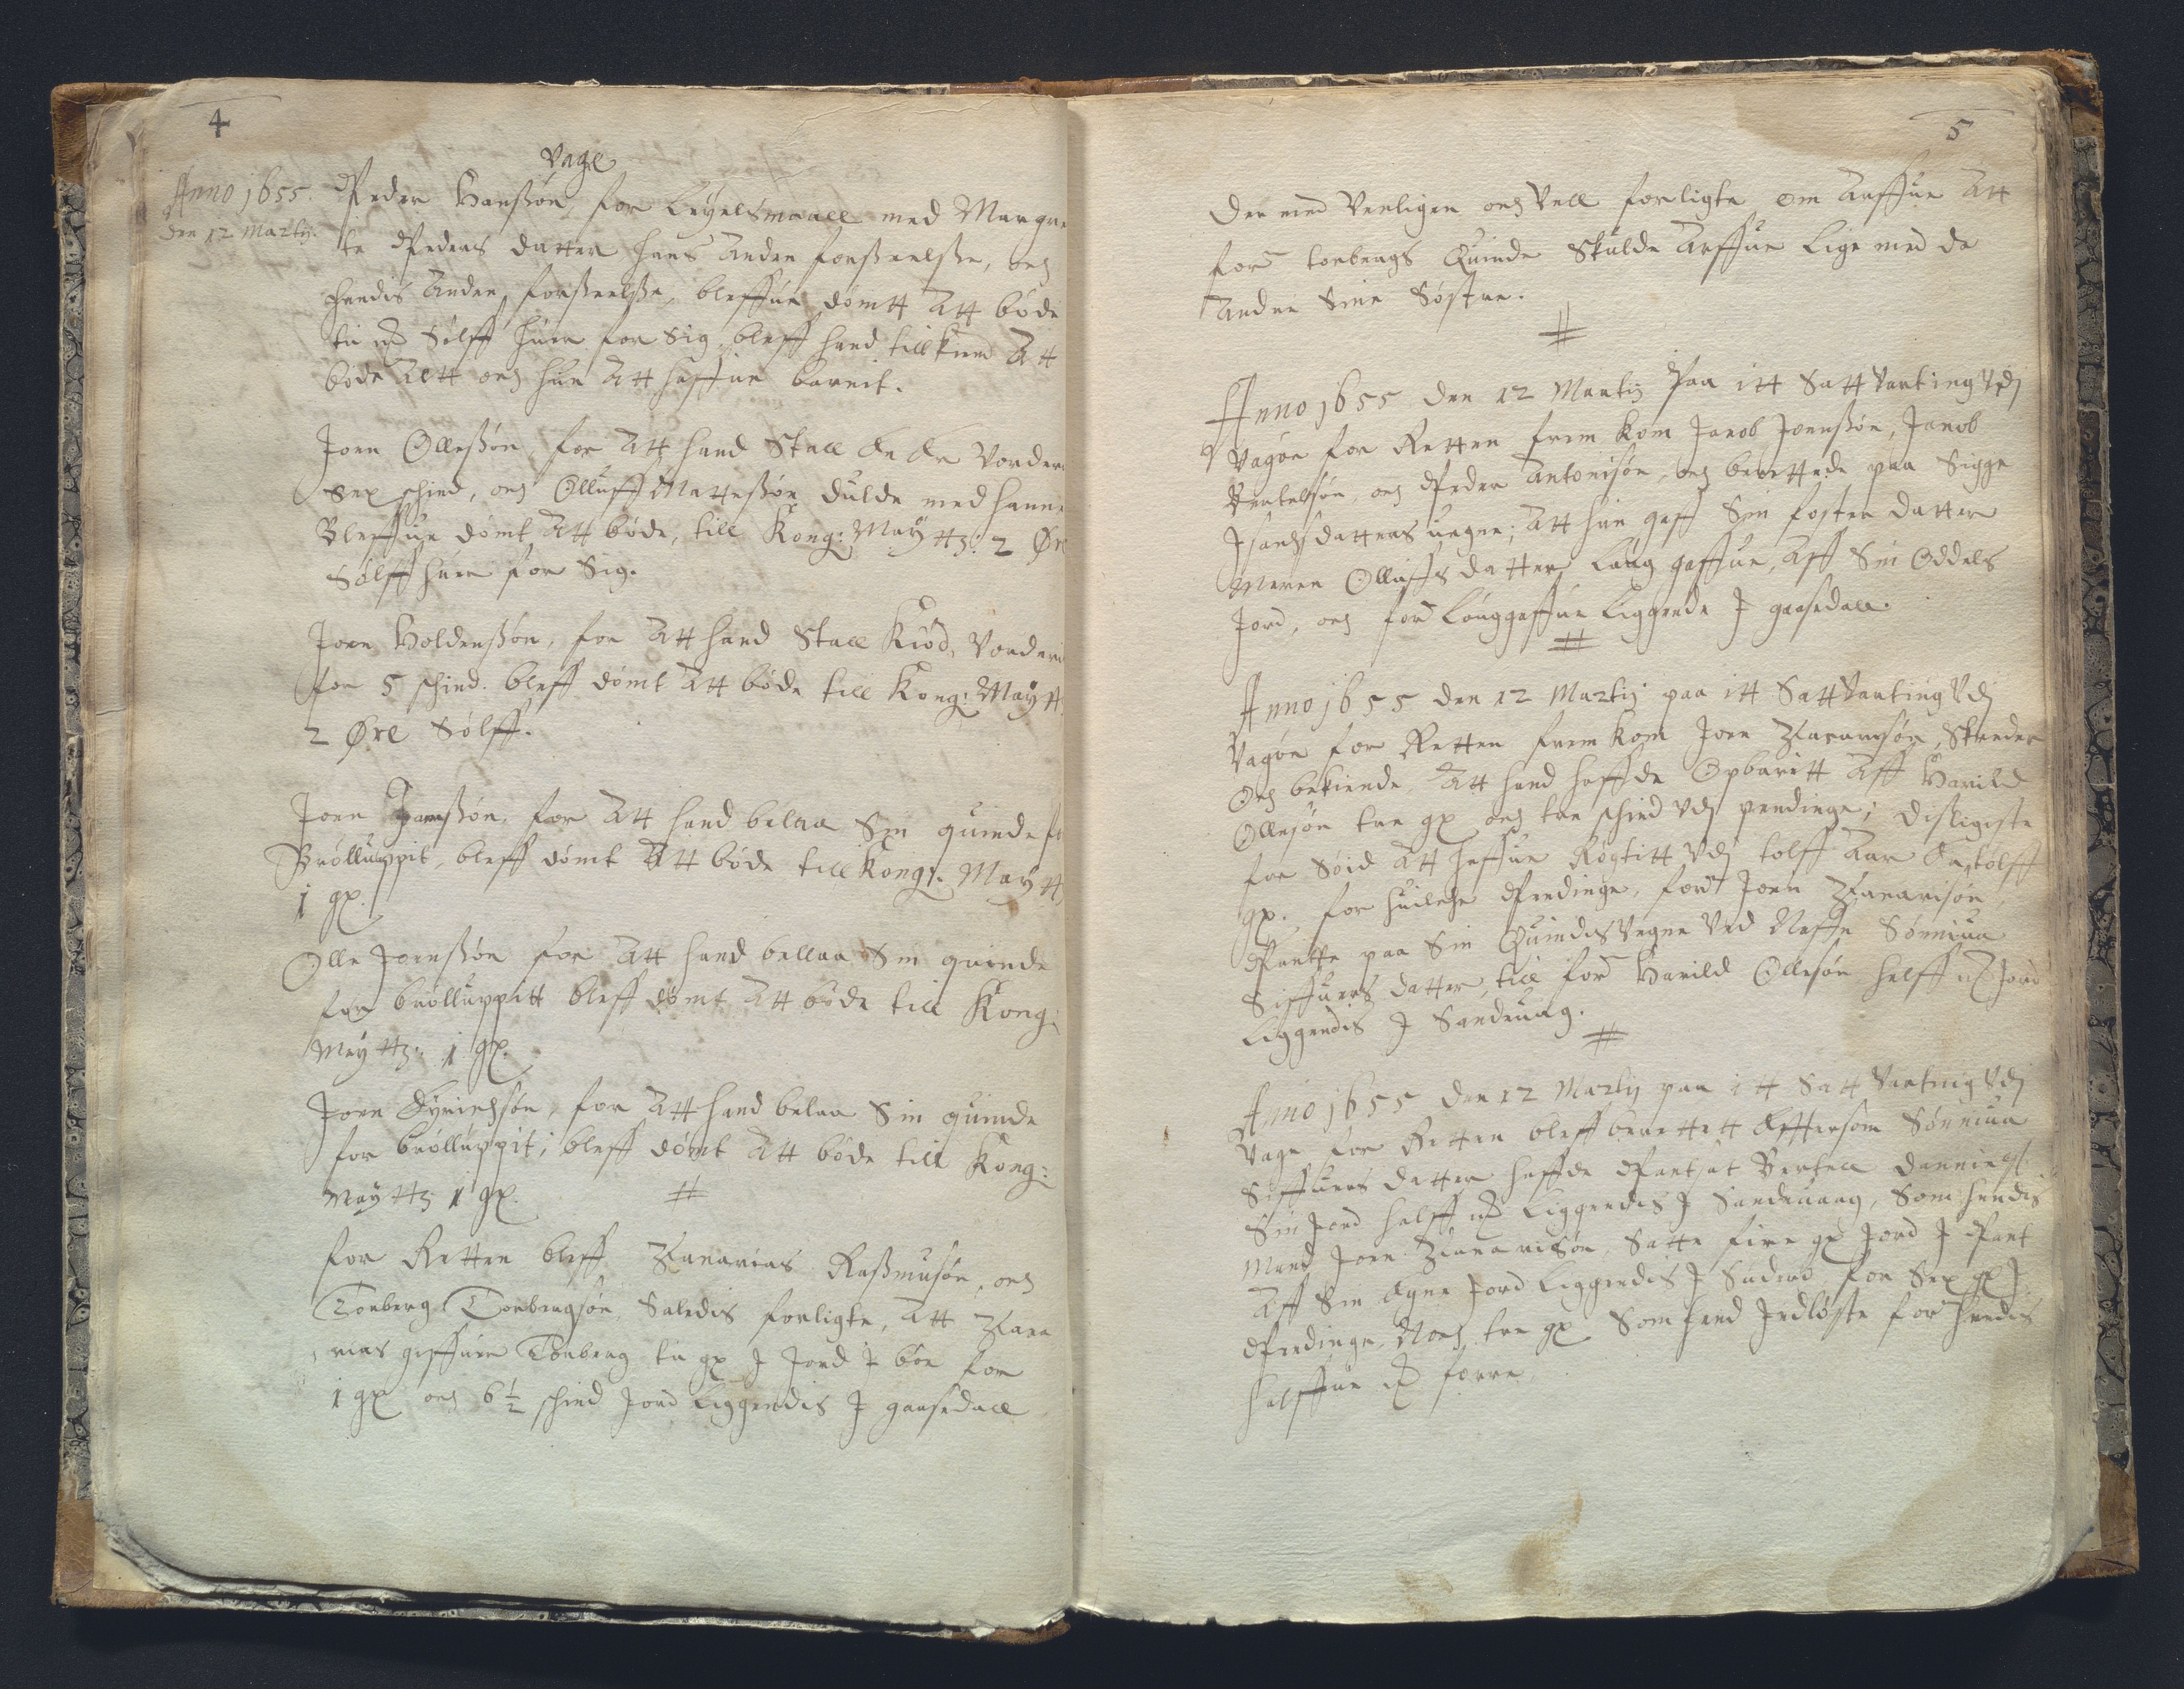 4
Vage
Anno 1655.
den 12 Martij.
Peder Hanßøn, for Leyelsmaall med Margre
te Peders datter hans Anden forseelse, och
hendis Anden forseelse, bleffue dømtt Att bøde
tu Sølff huer for Sig, bleff hand tillkiend Att
bøde Altt och hun Att haffue barnit.
Joen Olleßøn, for Att hand Stall Vorder
Sex schind, och Olluff Matteßøn dulde med hanne
Bleffue dømt Att bøde, till Kong: Maytts: 2 Ør
Sølff huer for Sig.
Joen Holdenßøn, for Att hand Stall Kiød, Vorderi
for 5 schind. bleff dømt Att bøde till Kong: Maytt
2 Øre Sølff.
Joen Joenßøn, for Att hand belaa Sin quinde fo
Brølluppit, bleff dømt Att bøde till Kong: Maytt
1 gx.
Olle Joenßøn for Att hand bellaa Sin quinde
for brølluppitt bleff dømt Att bøde till Kong:
Maytts: 1 gx.
Joen Dyrichsøn, for Att hand belaa Sin quinde
for brølluppit, bleff dømt Att bøde till Kong:
Maytts 1 gx.
for Retten bleff Zacarias Raßmusøn, och
Torberg Torbergsøn Saledis forligte, Att Zaca
rias giffuer Torberg tu gx J Jord J bøe for
1 gx och 6 1/2 schind Jord Liggendis J gaasedall
5
Der med Venligen och Vell forligte om Arffue Att
for: torbergs Quinde Skulde Arffue Lige med de
Andre Sine Søstre.
Anno 1655 den 12 Martij Paa itt Satt Vartingh Udj
Vagøe for Retten frem kom Jacob Joenßøn, Jacob
Bertelsøn, och Peder Antonisøn, och berettede paa Sigge
Isachsdatters uegne, Att hun gaff Sin foster datter
Maren Olluffs datter Laug gaffue, Aff Sin Oddels
Jord, och for: Louggaffue Liggende J gaasedall.
Anno 1655 den 12 Martij paa itt Satt Varting Udj
Vagøe for Retten frem kom Joen Zacarisøn, Skreder
Och bekiende, Att hand haffde Opbaritt Aff Harild
Ollesøn tre gx och tre schind Udj pendinge; disligiste
for Søid Att haffue Røgtitt Udj tolff Aar tolff
gx. for huilche Pendinge, for: Joen Zacarisøn
Pantte paa Sin Quindis Vegne Ved Naffn Sønniua
Siffuers datter, till for: Harild Ollesøn halff Jord
Liggendis J Sandeuag.
Anno 1655 den 12 Martij paa itt Satt Varting Udj
Vage for Retten bleff berettett Efftersom Sønniua
Siffuers datter haffde Pantsat Bertell
Sin Jord halff Liggendis J Sandeuaag, Som hendis
Mand Joen Zacarisøn, Satte fire gx Jord J Pant
Aff Sin Egne Jord Liggendis J Suderø, for Sex gx J
Pendinge, Noch tre gx Som hand Jndløste for: hendis
halffue forre